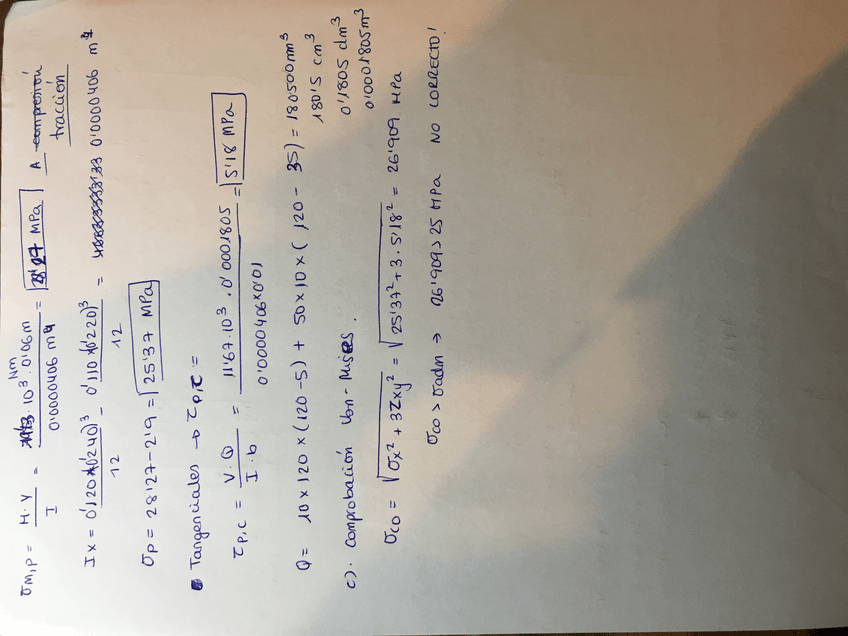 σM,P = M·Y / I = 10³ Nm · 0'06m / 0'0000406 m4 = 28'27 MPa A compresión tracción
Ix = 0'120×(0'240)³ / 12 - 0'110×(0'220)³ / 12 = 0'0000406 m4
σP = 28'27 - 2'9 = 25'37 MPa
• Tangenciales → τP,C =
τP,C = V·Q / I·b = 11'67·10³ · 0'0001805 / 0'0000406×0'01 = 5'18 MPa
Q = 10×120×(120-5) + 50×10×(120-35) = 180500mm³
180'5 cm³
0'1805 dm³
0'0001805m³
c). Comprobación Von-Mises.
σCO = √σx² + 3τxy² = √25'37² + 3·5'18² = 26'909 MPa
σCO > σadm → 26'909 > 25 MPa NO CORRECTO!